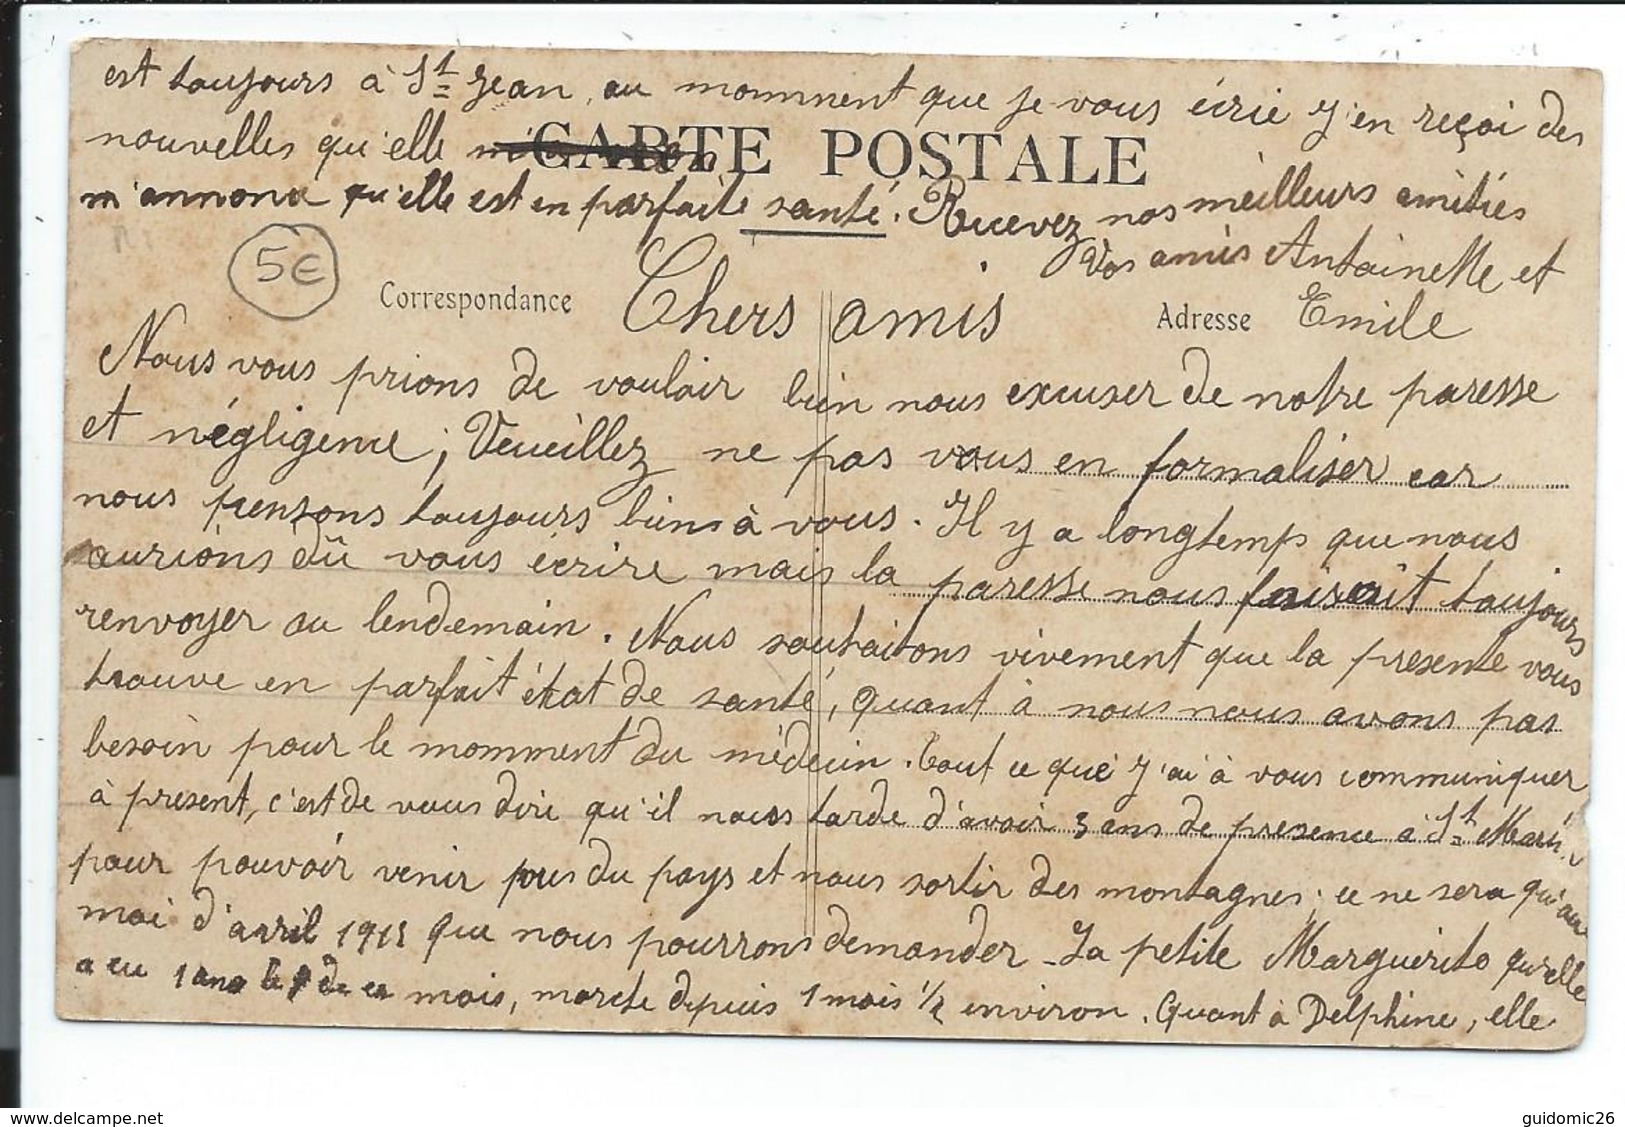 est toujours à St Jean, au momment que je vous écrie j'en reçoi des
nouvelles qu'elle
CARTE POSTALE
m'annonce qu'elle est en parfaite santé. Recevez nos meilleurs amitiés
Vos amis Antoinette et
5€
Correspondance
Chers amis
Adresse
Emile
Nous vous prions de vouloir bien nous excuser de notre paresse
et négligence, Veueillez ne pas vous en formaliser car
nous pensons toujours bien à vous. Il y a longtemps que nous
aurions dû vous écrire mais la paresse nous faisait toujours
renvoyer au lendemain. Nous souhaitons vivement que la présente vous
trouve en parfait état de santé, quant à nous nous avons pas
besoin pour le momment du médecin. Tout ce que j'ai à vous communiquer
à présent, c'est de vous dire qu'il nous tarde d'avoir 3 ans de présence à St Marie
pour pouvoir venir plus du pays et nous sortir des montagnes; ce ne sera qu'au
moi d'avril 1915 que nous pourrons demander - La petite Marguerite qu'elle
a eu 1 ans le de ce mois, marche depuis 1 mois 1/2 environ. Quant à Delphine, elle
www.delcampe.net
guidomic26